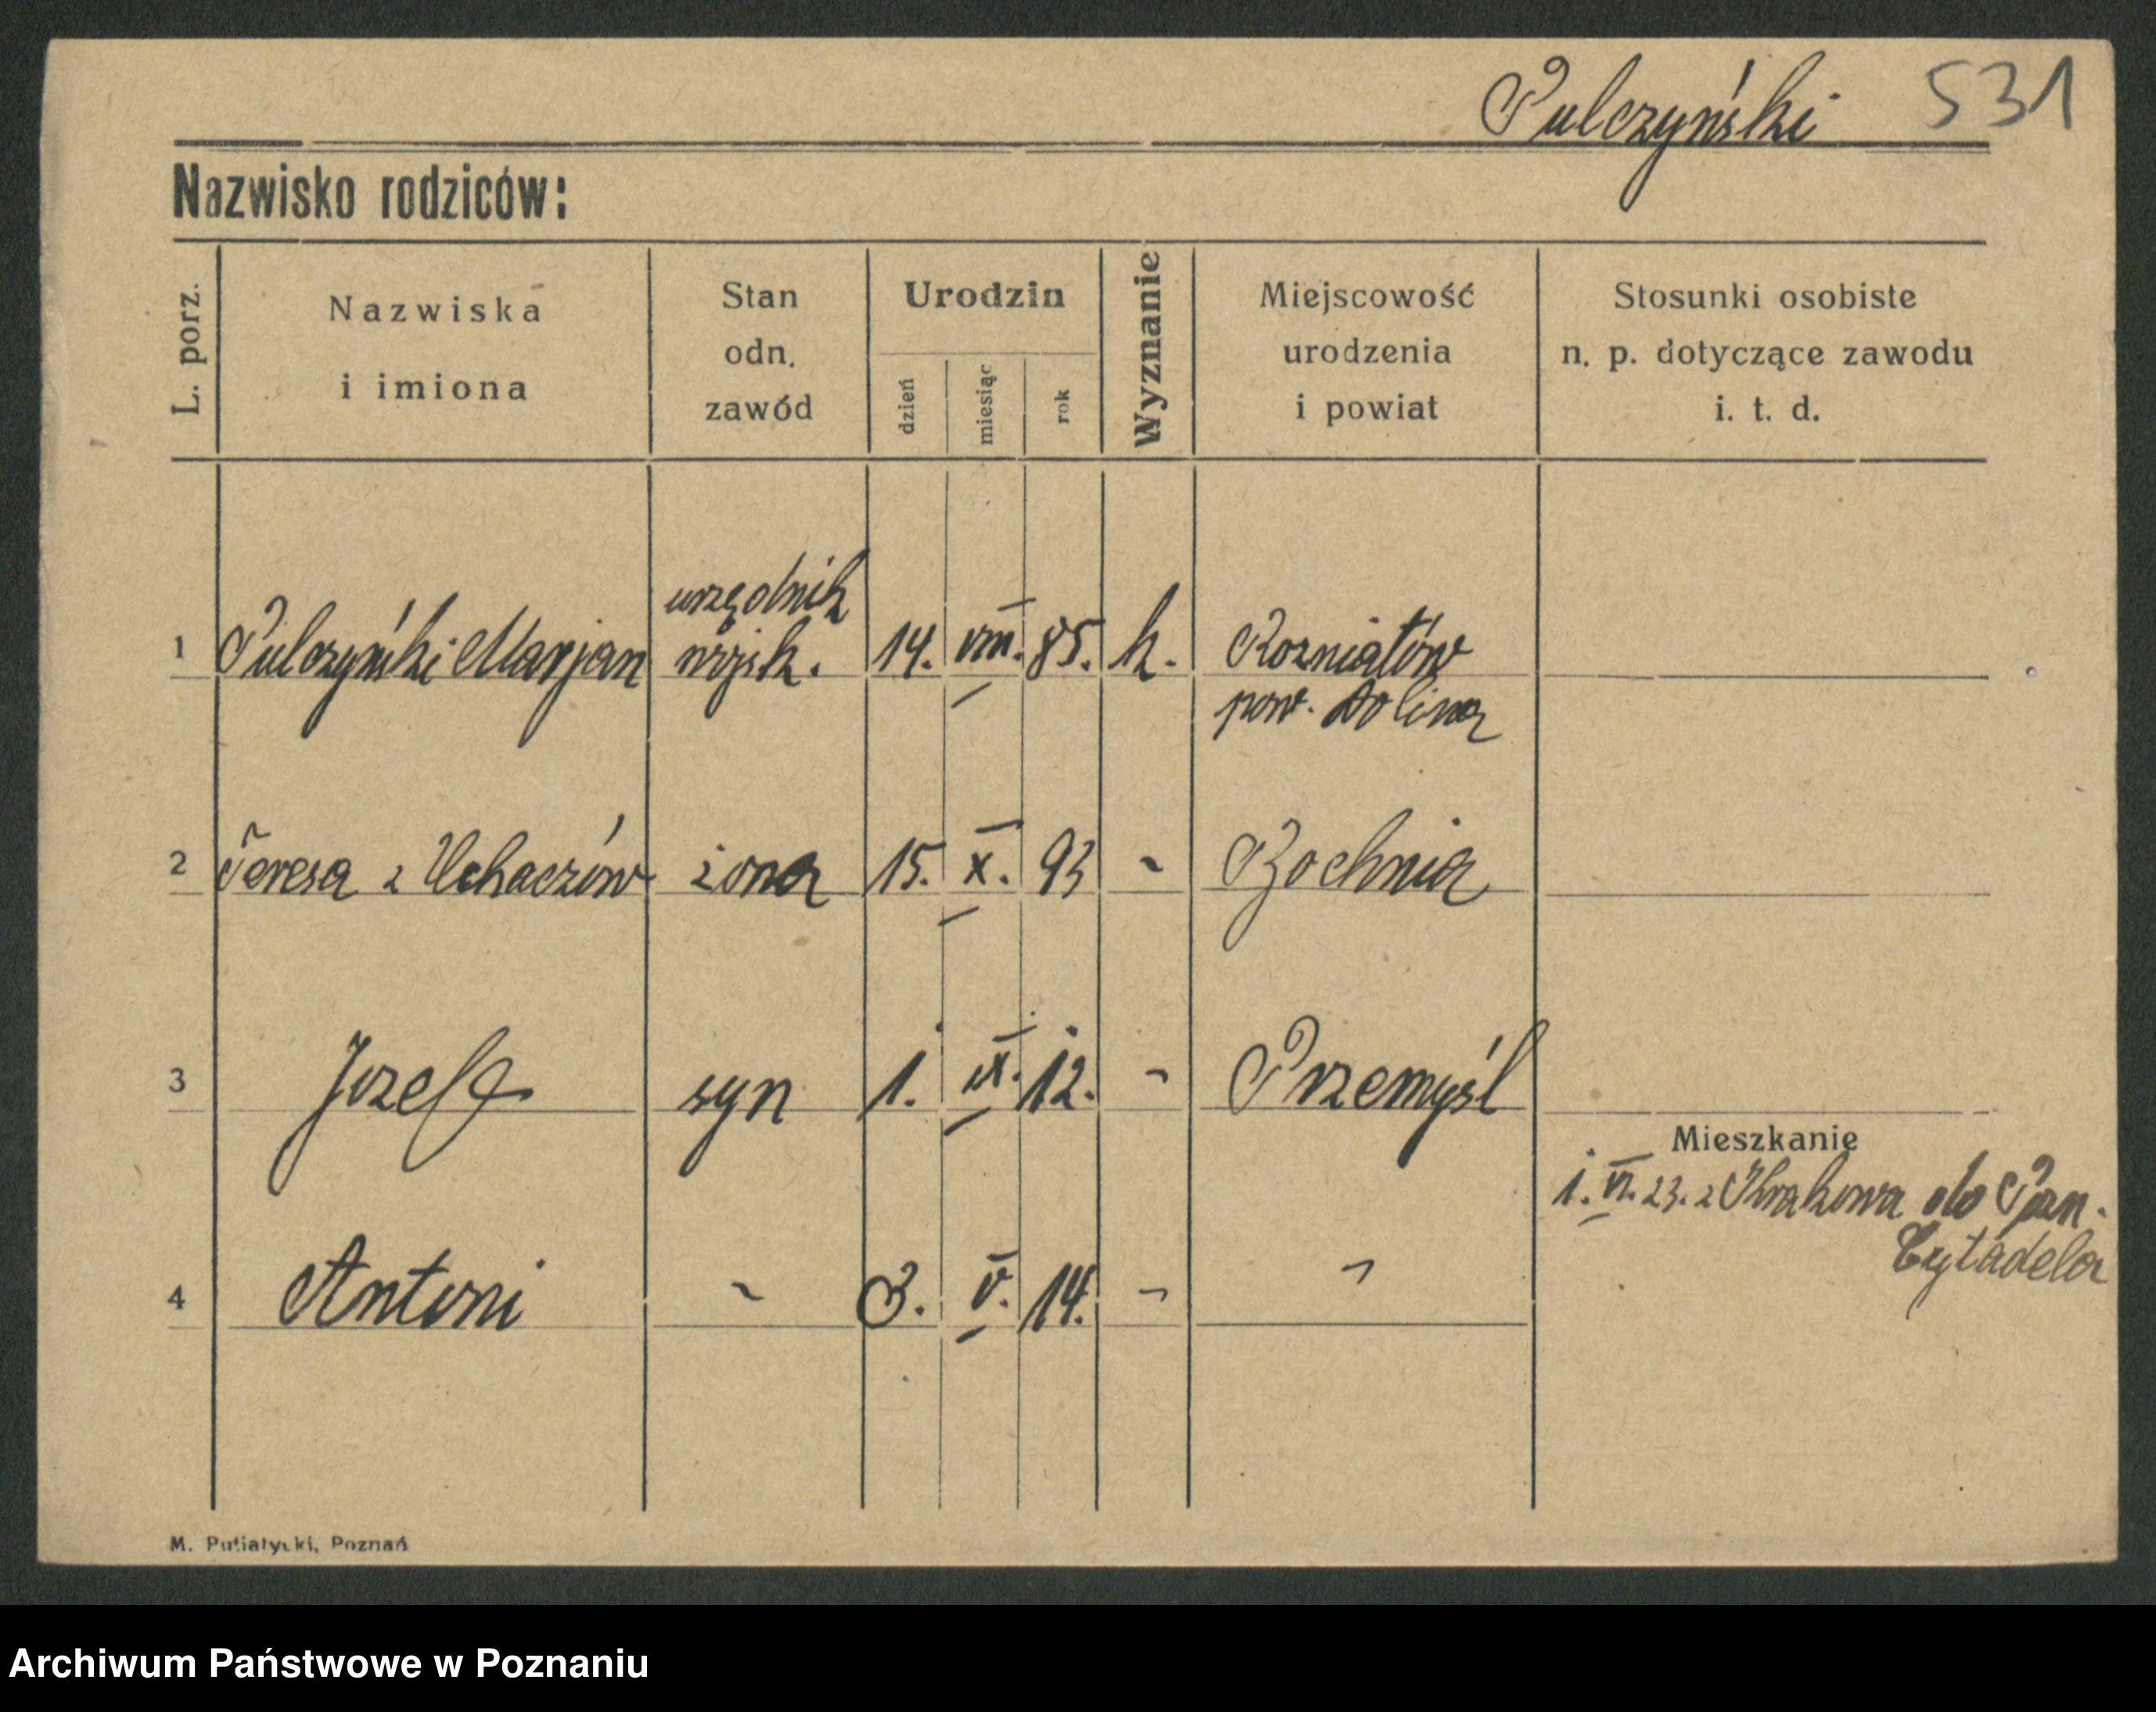 Pulczyński 531
Nazwisko rodziców:
L. porz.
Nazwiska
i imiona
Stan
odn.
zawód
Urodzin
dzień
miesiąc
rok
Wyznanie
Miejscowość
urodzenia
i powiat
Stosunki osobiste
n. p. dotyczące zawodu
i. t. d.
urzędnik
1 Pulczyński Marjan wojsk. 14. VIII. 85. k. Rozniatów
pow. Dolina
2 Teresa z Uchaczów żona 15. X. 93 ~ Bochnia
3 Jozef syn 1. IX. 12. ~ Przemyśl
Mieszkanie
1. VI. 23. z Krakowa do Pozn.
Cytadela
4 Antoni ~ 3. V. 14. ~ ~
M. Putiatycki, Poznań
Archiwum Państwowe w Poznaniu